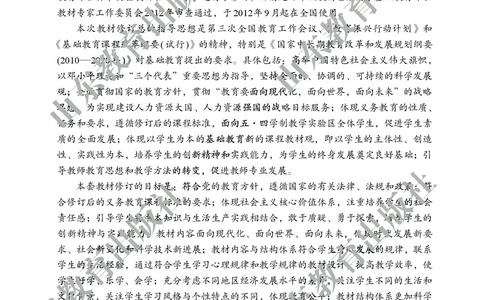 教材专家工作委员会2012年审查通过，于2012年9月起在全国使用。
本次教材修订总的指导思想是第三次全国教育工作会议、振兴行动计划》和
《基础教育课程纲要(试行)》的精神，特别是《国家中长期教育改革和发展规划纲要
(2010—20)》对基础教育提出的要求。具体包括：高举中国特色社会主义伟大旗帜，
以邓小平理和“三个代表”重要思想为指导，坚持的、协调的、可持续的科学发展
观；贯彻国家的教育方针，贯彻“教育要面向现代化，面向世界，面向未来”的战略
为实现建设人力资源大国、人力资源强国的战略目标服务；体现义务教育的性质、
务和要求，遵循修订后的课程标准，面向五·四学制教学实验区全体学生，促进学生素
质的全面发展；体现以学生为本的基础教育新的课程教材观，即以学生的主体性、创造
性、实践性为本，培养学生的创新精神和实践能力，为学生的终身发展奠定良好基础；引
导教师教育思想和教学方法的转变，促进教师专业发展。
本套教材修订的目标是：符合党的教育方针，遵循国家的有关法律、法规和政策；符
合修订后的义务教育课程标准的要求；体现社会主义核心价值体系，注重培养学生的社会
责任感；引导学生将书本知识与生活生产实践相结合，敢于质疑、勇于探索，培养学生的
创新精神与实践能力；教材内容面向现代化、面向世界、面向未来，体现时代发展新要
求、社会新变化和科学技术新进展；教材内容与结构体系符合学生身心发展的规律，联系
学生的生活经验，通过符合学生学习心理规律和教学规律的教材设计，提高教学效率，使
学生好学、乐学、会学；充分考虑不同地区经济发展水平的差异，关注学生不同的生活和
文化背景，关注学生学习风格与个性特点的不同，体现教育公平；教材结构体系为和科学
山东教育出版社